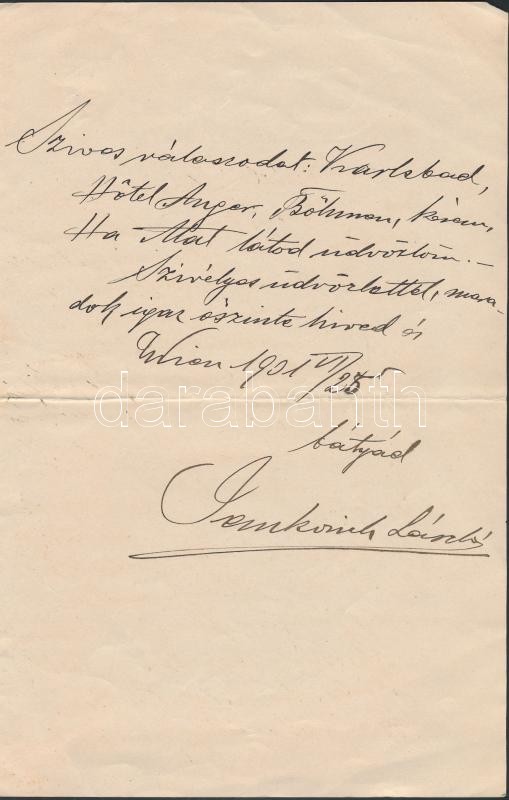 Szives válaszodat: Karlsbad,
Hôtel Anger, Böhmen, kérem,
Ha látod üdvözlöm. –
Szivélyes üdvözlettel, mara-
dok igaz őszinte hived és
Wien 1901 VI/25
bátyád
Jankovich László
darabanth